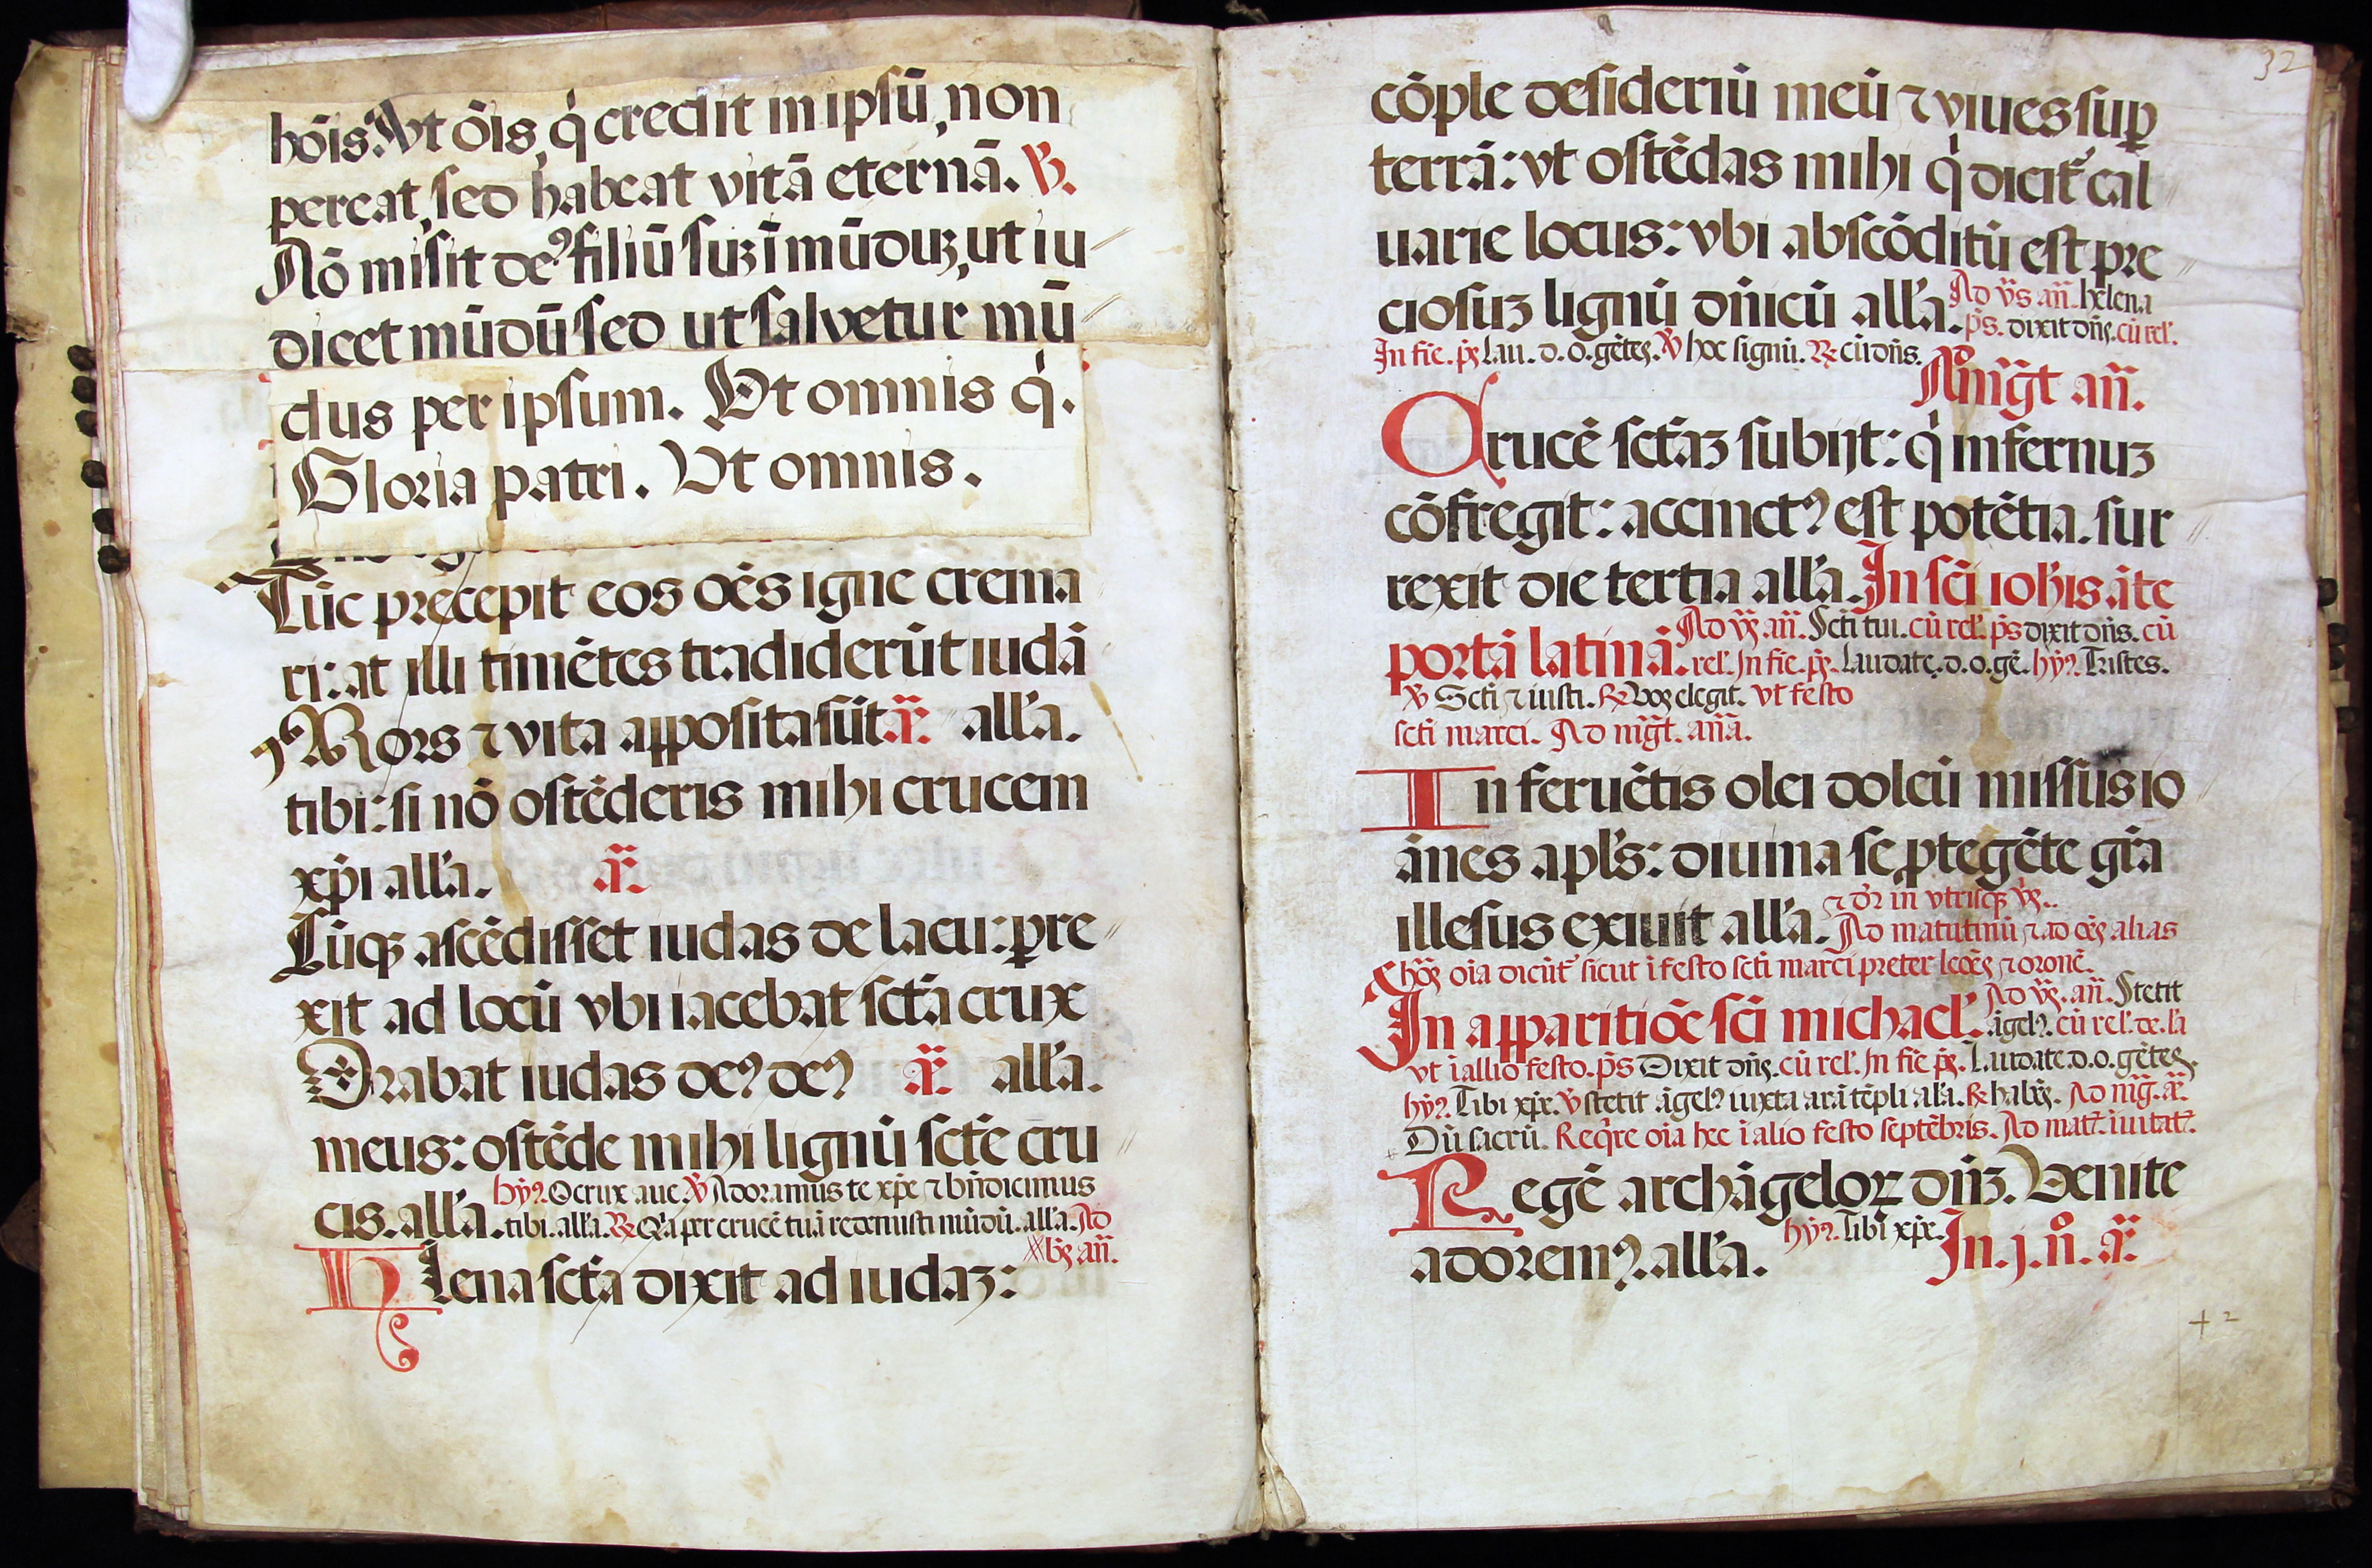 hōis. Ut ōīs, q̇ credit in ipsū, non
pereat, sed habeat vitā eternā. ℣.
Nō misit deꝰ filiū suꝫ ī mūduꝫ, ut iu
dicet mūdū sed ut salvetur mū
dus per ipsum. Ut omnis q̇.
Gloria patri. Ut omnis.
Tūc precepit eos oēs igne crema
ri: at illi timētes tradiderūt iudā
Mors ⁊ vita apposita sūt ā. all'a.
tibi: si nō ostēderis mihi crucem
xp̄i all'a. ā.
Cūqꝫ ascēdisset iudas de lacu: ꝑre
xit ad locū vbi iacebat sct̄a crux
Orabat iudas deꝰ deꝰ ā. all'a.
meus: ostēde mihi lignū sct̄e cru
cis. all'a. hȳꝰ. O crux aue ℣ Adoramus te xp̄e ⁊ bn̄dicimus
tibi. all'a. ℟ Q'a per crucē tuā redemisti mūdū. all'a. Ad
bꝫ añ.
Helena sct̄a dixit ad iudaꝫ:
32
cōple desideriū meū ⁊ viues suꝑ
terrā: vt ostēdas mihi q̇ dicit' cal
uarie locus: vbi abscōditū est pre
ciosuꝫ lignū dn̄icū all'a. Ad v̄s añ. helena
p̄s. dixit dn̄s. cū rel'.
In fīe. pꝫ Lau. d. o. gētes. ℣ hoc signū. ℟ cū dn̄s.
Ad mg̃t añ.
Crucē sct̄aꝫ subijt: q̇ infernuꝫ
cōfregit: accinctꝰ est potētia. sur
rexit die tertia all'a. In sc̄i ioh'is āte
portā latinā. Ad vꝫ añ. Sct̄i tui. cū rel'. p̄s dixit dn̄s. cū
rel'. In fīe. pꝫ. Laudate. d. o. gē. hȳꝰ. Tristes.
℣ Sct̄i ⁊ iusti. ℟ Vos elegit. vt festo
sct̄i marci. Ad mg̃t. añā.
In feruētis olei doleū missus io
ānes apl's: diuina se ꝓtegēte gr̄a
illesus exiuit all'a. ⁊ d'r in vtrisqꝫ vꝫ.
Ad matutinū ⁊ ad oēs alias
hōꝫ oīa dicūt' sicut ī festo sct̄i marci preter lecōꝫ ⁊ oronē.
In apparitiōe sc̄i michael'. Ad vꝫ. añ. Stetit
āgelꝰ. cū rel'. de. la
vt ī allio festo. p̄s Dixit dn̄s. cū rel'. In fīe pꝫ. Laudate. d. o. gētes.
hȳꝰ. Tibi xp̄e. ℣ stetit āgelꝰ iuxta arā tēpli all'a. ℟ habēs. Ad mg̃. ā.
Dū sacrū. Reqͥre oīa hec ī alio festo septēbris. Ad mat̄. īuitat̄.
Regē archāgeloꝝ dn̄ꝫ. Venite
adoremꝰ. all'a. hȳꝰ. Tibi xp̄e. In. j. n̊. ā.
+ 2